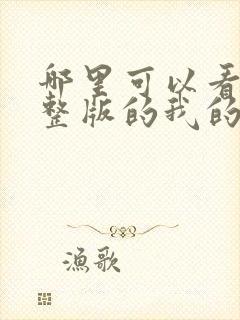 哪里可以看
整版的我的
漁歌